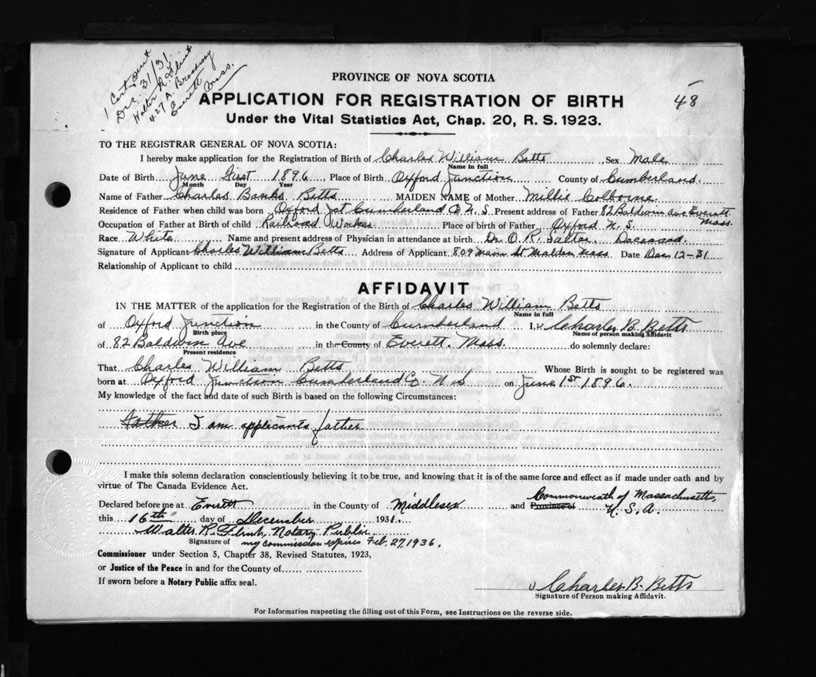 1 Cert. sent
Dec. 31/31
Walter R. Flint
427 A. Broadway
Everett Mass.
48
PROVINCE OF NOVA SCOTIA
APPLICATION FOR REGISTRATION OF BIRTH
Under the Vital Statistics Act, Chap. 20, R. S. 1923.
TO THE REGISTRAR GENERAL OF NOVA SCOTIA:
I hereby make application for the Registration of Birth of Charles William Betts Sex Male
Name in full
Date of Birth June First 1896 Place of Birth Oxford Junction County of Cumberland
Month Day Year
Name of Father Charles Banks Betts MAIDEN NAME of Mother Millie Colborne
Residence of Father when child was born Oxford Jct Cumberland Co N.S Present address of Father 82 Baldwin Ave Everett Mass.
Occupation of Father at Birth of child Railroad Worker Place of birth of Father Oxford N.S.
Race White Name and present address of Physician in attendance at birth Dr. O. R. Salter Deceased
Signature of Applicant Charles William Betts Address of Applicant 809 Main St Malden Mass Date Dec 12-31
Relationship of Applicant to child
AFFIDAVIT
IN THE MATTER of the application for the Registration of the Birth of Charles William Betts
Name in full
of Oxford Junction in the County of Cumberland I, Charles B. Betts
Birth place Name of person making Affidavit
of 82 Baldwin Ave in the County of Everett Mass. do solemnly declare:
Present residence
That Charles William Betts Whose Birth is sought to be registered was
born at Oxford Junction Cumberland Co. N.S on June 1st 1896.
My knowledge of the fact and date of such Birth is based on the following Circumstances:
Father I am applicants father
I make this solemn declaration conscientiously believing it to be true, and knowing that it is of the same force and effect as if made under oath and by
virtue of The Canada Evidence Act.
Declared before me at Everett in the County of Middlesex and Province of Commonwealth of Massachusetts
this 16th day of December 1931. U.S.A.
Walter R. Flint, Notary Public
Signature of my commission expires Feb. 27, 1936.
Commissioner under Section 5, Chapter 38, Revised Statutes, 1923,
or Justice of the Peace in and for the County of
If sworn before a Notary Public affix seal.
Charles B. Betts
Signature of Person making Affidavit.
For Information respecting the filling out of this Form, see Instructions on the reverse side.